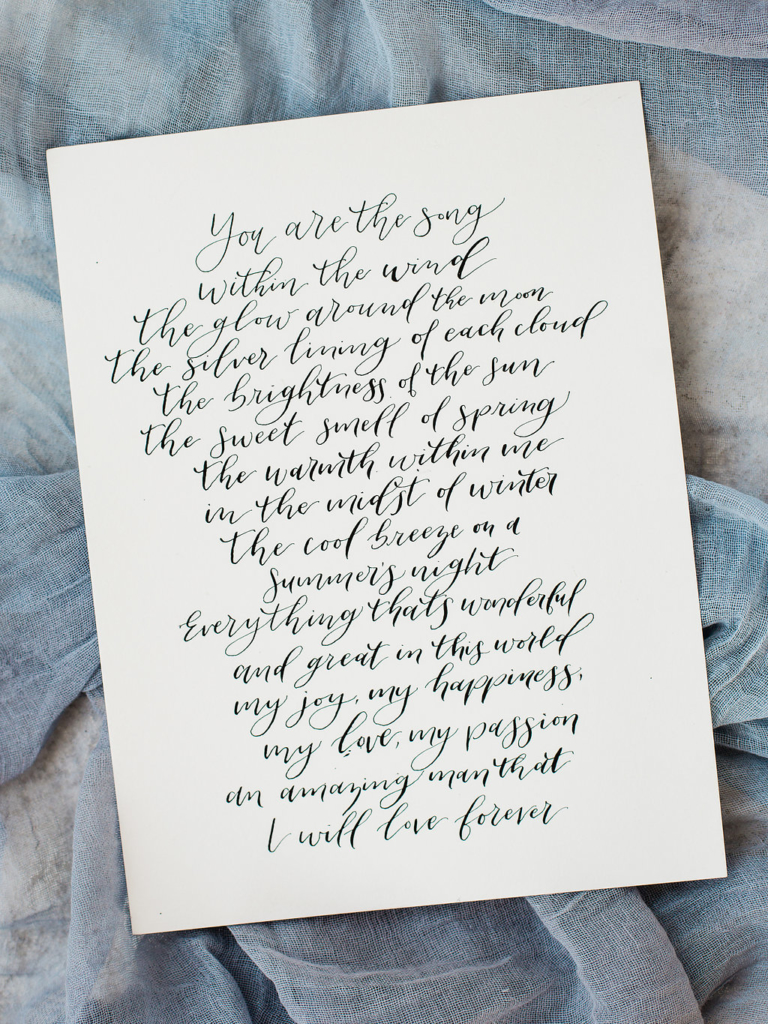 You are the song
within the wind
the glow around the moon
the silver lining of each cloud
the brightness of the sun
the sweet smell of spring
the warmth within me
in the midst of winter
the cool breeze on a
summer's night
Everything thats wonderful
and great in this world
my joy, my happiness,
my love, my passion
an amazing man that
I will love forever